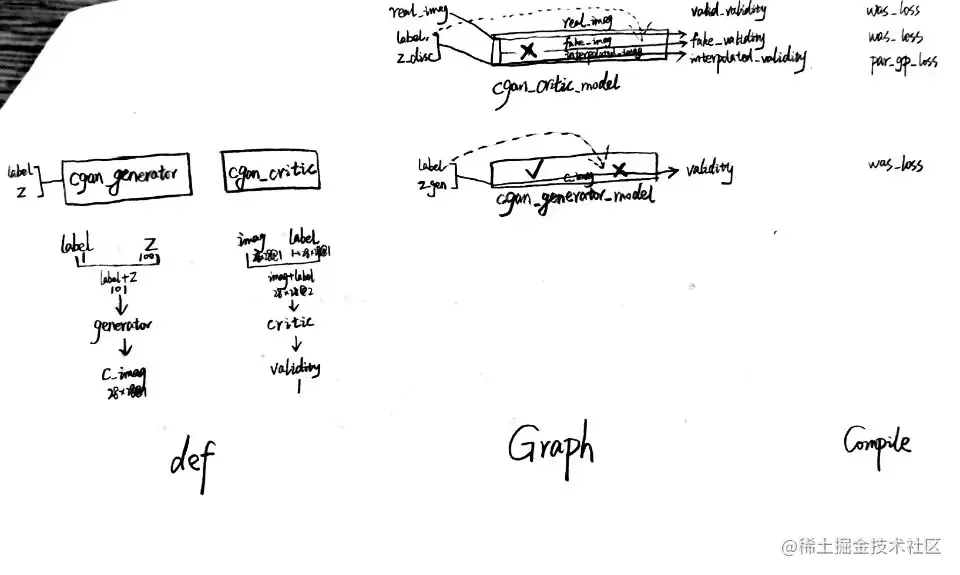 real_imag
label
z_disc
real_imag
fake_imag
interpolated_imag
cgan_critic_model
valid_validity
fake_validity
interpolated_validity
was_loss
was_loss
par_gp_loss
label
z
cgan_generator
cgan_critic
label
z_gen
c_imag
cgan_generator_model
validity
was_loss
label
1
Z
100
label+Z
101
generator
c_imag
28×28@1
imag
28×28@1
label
1→28×28@1
imag+label
28×28@2
critic
validity
1
def
Graph
Compile
@稀土掘金技术社区